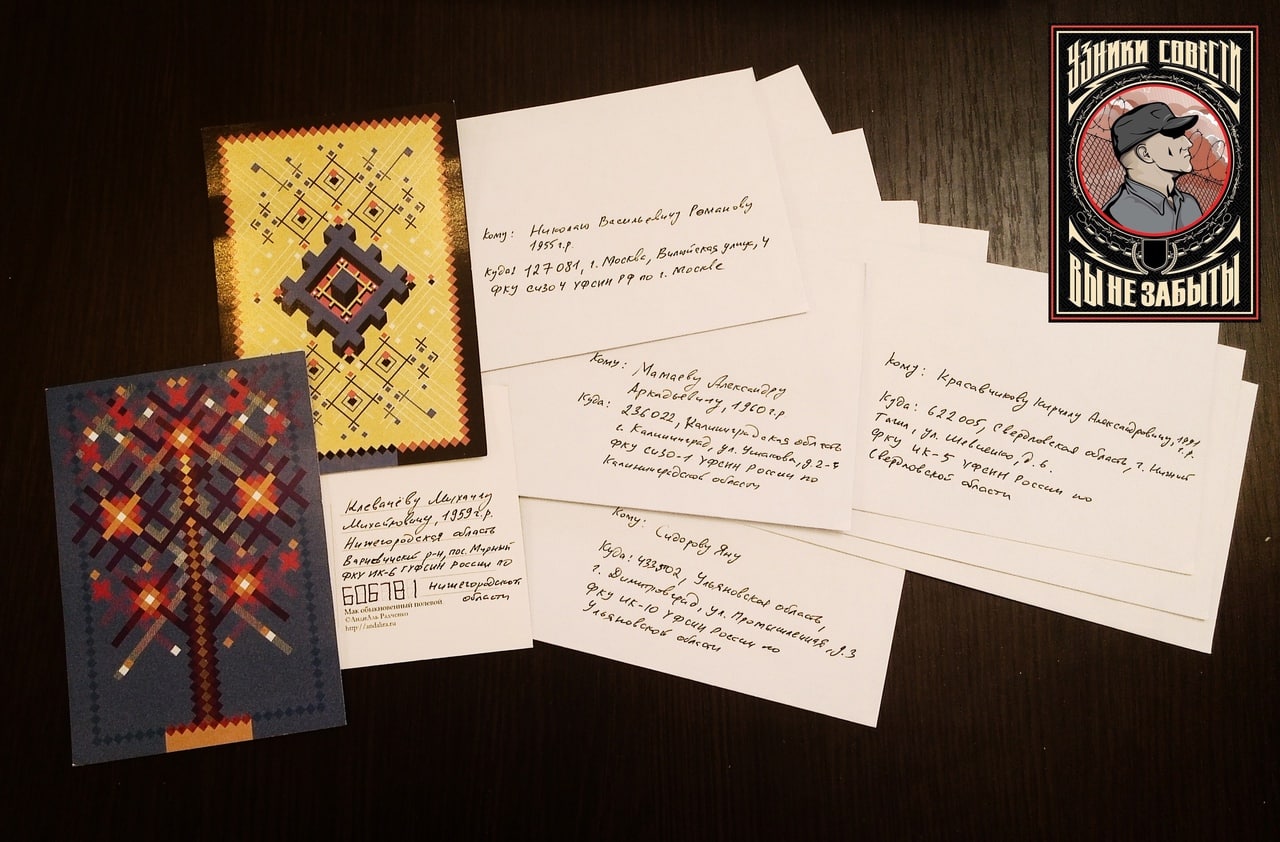 УЗНИКИ СОВЕСТИ
ВЫ НЕ ЗАБЫТЫ
Кому: Николаю Васильевичу Романову
1955 г.р.
Куда: 127081, г. Москва, Вилюйская улица, 4
ФКУ СИЗО 4 УФСИН РФ по г. Москве
Кому: Мамаеву Александру
Аркадьевичу, 1960 г.р.
Куда: 236022, Калининградская область
г. Калининград, ул. Ушакова, д. 2-4
ФКУ СИЗО-1 УФСИН России по
Калининградской области
Кому: Красавчикову Кириллу Александровичу, 1991
г.р.
Куда: 622005, Свердловская область, г. Нижний
Тагил, ул. Шевченко, д. 6.
ФКУ ИК-5 УФСИН России по
Свердловской области
Клевачёву Михаилу
Михайловичу, 1959 г.р.
Нижегородская область
Варнавинский р-н, пос. Мирный
ФКУ ИК-6 ГУФСИН России по
606781 Нижегородской
области
Мак обыкновенный полевой
©АндиАль Радченко
http://andalira.ru
Кому: Сидорову Яну
Куда: 433502, Ульяновская область,
г. Димитровград, ул. Промышленная, д. 3
ФКУ ИК-10 УФСИН России по
Ульяновской области